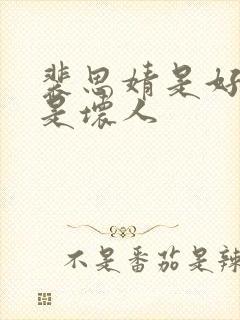 裴思婧是好
是壞人
不是番茄是辣